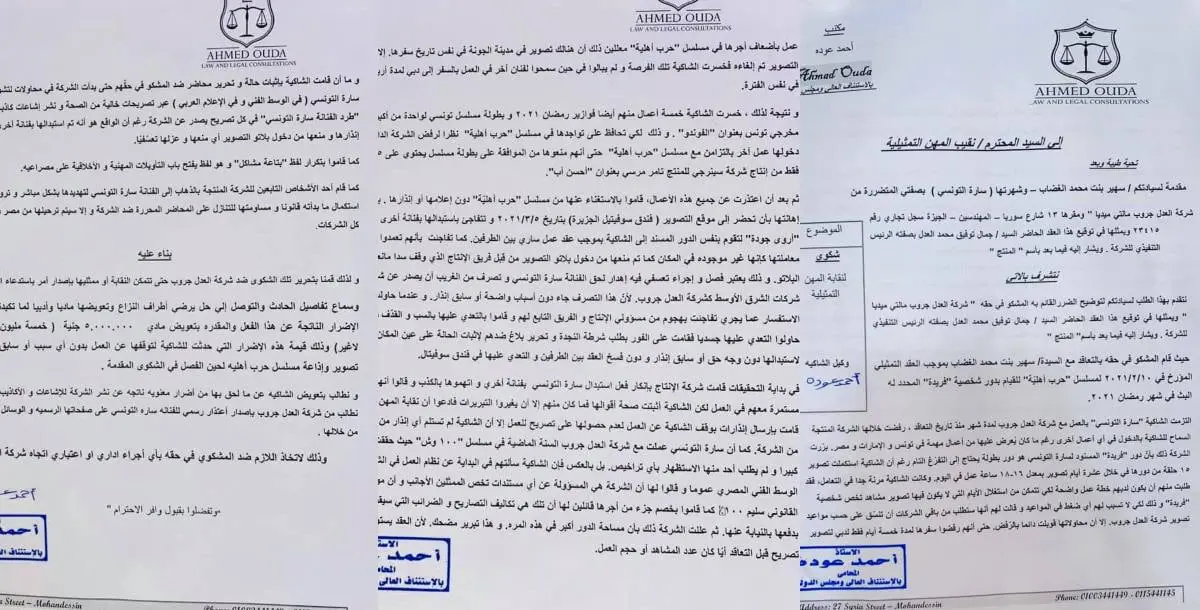 مكتب
أحمد عوده
Ahmad Ouda
بالاستئناف العالى ومجلس
AHMED OUDA
LAW AND LEGAL CONSULTATIONS
إلى السيد المحترم / نقيب المهن التمثيلية
تحية طيبة وبعد
مقدمة لسيادتكم / سهير بنت محمد الغضاب – وشهرتها ( سارة التونسي ) بصفتي المتضررة من
شركة العدل جروب مالتي ميديا " ومقرها ١٣ شارع سوريا – المهندسين – الجيزة سجل تجاري رقم
٢٣٤١٥ ويمثلها في توقيع هذا العقد الحاضر السيد / جمال توفيق محمد العدل بصفته الرئيس
التنفيذي للشركة . ويشار إليه فيما بعد بأسم " المنتج "
الموضوع
شكوي
لنقابة المهن
التمثيلية
وكيل الشاكيه
أحمد عوده
نتشرف بالاتي
نتقدم بهذا الطلب لسيادتكم لتوضيح الضرر القائم به المشكو في حقه " شركة العدل جروب مالتي ميديا
" ويمثلها في توقيع هذا العقد الحاضر السيد / جمال توفيق محمد العدل بصفته الرئيس التنفيذي
للشركة . ويشار إليه فيما بعد بأسم " المنتج "
حيث قام المشكو في حقه بالتعاقد مع السيدة/ سهير بنت محمد الغضاب بموجب العقد التمثيلي
المؤرخ في ٢٠٢١/٢/١٠ لمسلسل "حرب أهلية" للقيام بدور شخصية "فريدة" المحدد له
البث في شهر رمضان ٢٠٢١.
التزمت الشاكية "سارة التونسي" بالعمل مع شركة العدل جروب لمدة شهر منذ تاريخ التعاقد ، رفضت خلالها الشركة المنتجة
السماح للشاكية بالدخول في أي أعمال أخرى رغم ما كان يُعرض عليها من أعمال مهمة في تونس و الإمارات و مصر. بررت
الشركة ذلك بأن دور "فريدة" المسنود لسارة التونسي هو دور بطولة يحتاج إلى التفرغ التام رغم أن الشاكية استكملت تصوير
١٥ حلقة من دورها في خلال عشرة أيام تصوير بمعدل ١٦-١٨ ساعة عمل في اليوم. وكانت الشاكية مرنة جدا في التعامل، فقد
طلبت منهم أن يكون لديهم خطة عمل واضحة لكي تتمكن من استغلال الأيام التي لا يكون فيها تصوير مشاهد تخص شخصية
"فريدة" و ذلك لكي لا تسبب لهم أي ضغط في المواعيد و قالت لهم أنها ستطلب من باقي الشركات أن تنسق على حسب مواعيد
تصوير شركة العدل جروب. إلا أن محاولاتها قوبلت دائما بالرفض. حتى أنهم رفضوا سفرها لمدة خمسة أيام فقط لدبي لتصوير
الاستاذ
أحمد عوده
المحامي
بالاستئناف العالى ومجلس الدولة
Address: 27 Syria Street – Mohandessin
Phone: 01003441449 - 0115441145
AHMED OUDA
LAW AND LEGAL CONSULTATIONS
عمل بأضعاف أجرها في مسلسل "حرب أهلية" معللين ذلك أن هنالك تصوير في مدينة الجونة في نفس تاريخ سفرها. إلا
التصوير تم إلغاءه فخسرت الشاكية تلك الفرصة و لم يبالوا في حين سمحوا لفنان آخر في العمل بالسفر إلى دبي لمدة أر
في نفس الفترة.
و نتيجة لذلك ، خسرت الشاكية خمسة أعمال منهم أيضا فوازير رمضان ٢٠٢١ و بطولة مسلسل تونسي لواحدة من أكبر
مخرجي تونس بعنوان "الفوندو" . و ذلك لكي تحافظ على تواجدها في مسلسل "حرب أهلية" نظرا لرفض الشركة الدا
دخولها عمل آخر بالتزامن مع مسلسل "حرب أهلية" حتى أنهم منعوها من الموافقة على بطولة مسلسل يحتوي على ٥
فقط من إنتاج شركة سينرجي للمنتج تامر مرسي بعنوان "أحسن أب".
ثم بعد أن اعتذرت عن جميع هذه الأعمال، قاموا بالاستغناء عنها من مسلسل "حرب أهلية" دون إعلامها أو إنذارها . و
إهانتها بأن تحضر إلى موقع التصوير ( فندق سوفيتيل الجزيرة) بتاريخ ٢٠٢١/٣/٥ و تتفاجئ باستبدالها بفنانة أخرى
"أروى جودة" لتقوم بنفس الدور المسند إلى الشاكية بموجب عقد عمل ساري بين الطرفين. كما تفاجئت بأنهم تعمدوا
معاملتها كإنها غير موجوده في المكان كما تم منعها من دخول بلاتو التصوير من قبل فريق الإنتاج الذي وقف سدا مانع
البلاتو. و ذلك يعتبر فصل و إجراء تعسفي فيه إهدار لحق الفنانة سارة التونسي و تصرف من الغريب أن يصدر عن ش
شركات الشرق الأوسط كشركة العدل جروب. لأن هذا التصرف جاء دون أسباب واضحة أو سابق إنذار. و عندما حاول
الاستفسار عما يجري تفاجئت بهجوم من مسؤولي الإنتاج و الفريق التابع لهم و قاموا بالتعدي عليها بالسب و القذف
حاولوا التعدي عليها جسديا فقامت على الفور بطلب شرطة النجدة و تحرير بلاغ ضدهم لإثبات الحالة على عين المكان
لاستبدالها دون وجه حق أو سابق إنذار و دون فسخ العقد بين الطرفين و التعدي عليها في فندق سوفيتال.
في بداية التحقيقات قامت شركة الإنتاج بإنكار فعل استبدال سارة التونسي بفنانة أخرى و اتهموها بالكذب و قالوا أنه
مستمرة معهم في العمل لكن الشاكية أثبتت صحة أقوالها فما كان منهم إلا أن يغيروا التبريرات فادعوا أن نقابة المهن
قامت بإرسال إنذارات بوقف الشاكية عن العمل لعدم حصولها على تصريح للعمل إلا أن الشاكية لم تستلم أي إنذار من
من الشركة. كما أن سارة التونسي عملت مع شركة العدل جروب السنة الماضية في مسلسل "١٠٠ وش" حيث حققت
كبيرا و لم يطلب أحد منها الاستظهار بأي تراخيص. بل بالعكس فإن الشاكية سألتهم في البداية عن نظام العمل في الش
الوسط الفني المصري عموما و قالوا لها أن الشركة هي المسؤولة عن أي مستندات تخص الممثلين الأجانب و أن مو
القانوني سليم ١٠٠٪ كما قاموا بخصم جزء من أجرها قائلين لها أن تلك هي تكاليف التصاريح و الضرائب التي سيقو
بدفعها بالنيابة عنها. ثم عللت الشركة ذلك بأن مساحة الدور أكبر في هذه المره. و هذا تبرير مضحك. لأن العقد يستو
تصريح قبل التعاقد أيًا كان عدد المشاهد أو حجم العمل.
الاستاذ
أحمد عوده
المحامي
بالاستئناف العالى ومج
AHMED OUDA
LAW AND LEGAL CONSULTATIONS
و ما أن قامت الشاكية بإثبات حالة و تحرير محاضر ضد المشكو في حقهم حتى بدأت الشركة في محاولات لتشو
سارة التونسي ( في الوسط الفني و في الإعلام العربي ) عبر تصريحات خالية من الصحة و نشر إشاعات كاذب
"طرد الفنانة سارة التونسي" في كل تصريح يصدر عن الشركة رغم أن الواقع هو أنه تم استبدالها بفنانة أخر
إنذارها و منعها من دخول بلاتو التصوير أي منعها و عزلها تعسفيا.
كما قاموا بتكرار لفظ "بتاعة مشاكل" و هو لفظ يفتح باب التأويلات المهنية و الأخلاقية على مصراعيه.
كما قام أحد الأشخاص التابعين للشركة المنتجة بالذهاب إلى الفنانة سارة التونسي لتهديدها بشكل مباشر و ترو
استكمال ما بدأته قانونا و مساومتها للتنازل على المحاضر المحررة ضد الشركة و إلا سيتم ترحيلها من مصر
كل الشركات.
بناء عليه
و لذلك قمنا بتحرير تلك الشكوى ضد شركة العدل جروب حتى تتمكن النقابة أو ممثليها بإصدار أمر باستدعاء ا
وسماع تفاصيل الحادث والتوصل إلي حل يرضي أطراف النزاع وتعويضها ماديا وأدبيا لما تكبد
الإضرار الناتجة عن هذا الفعل والمقدره بتعويض مادي ٥.٠٠٠.٠٠٠ جنية ( خمسة مليون
لاغير) وذلك قيمة هذه الإضرار التي حدثت للشاكية لتوقفها عن العمل بدون أي سبب أو سابق
تصوير وإذاعة مسلسل حرب أهليه لحين الفصل في الشكوى المقدمة .
و نطالب بتعويض الشاكيه عن ما لحق بها من أضرار معنويه ناتجه عن نشر الشركة للإشاعات و الأكاذيب
نطالب من شركة العدل جروب بإصدار أعتذار رسمي للفنانه ساره التونسي على صفحاتها الرسميه و الوسائل
من خلالها .
وذلك لاتخاذ اللازم ضد المشكوي في حقه بأي أجراء اداري او اعتباري اتجاه شركة ا
" وتفضلوا بقبول وافر الاحترام "
بالاستئناف العا
Street – Mohandessin